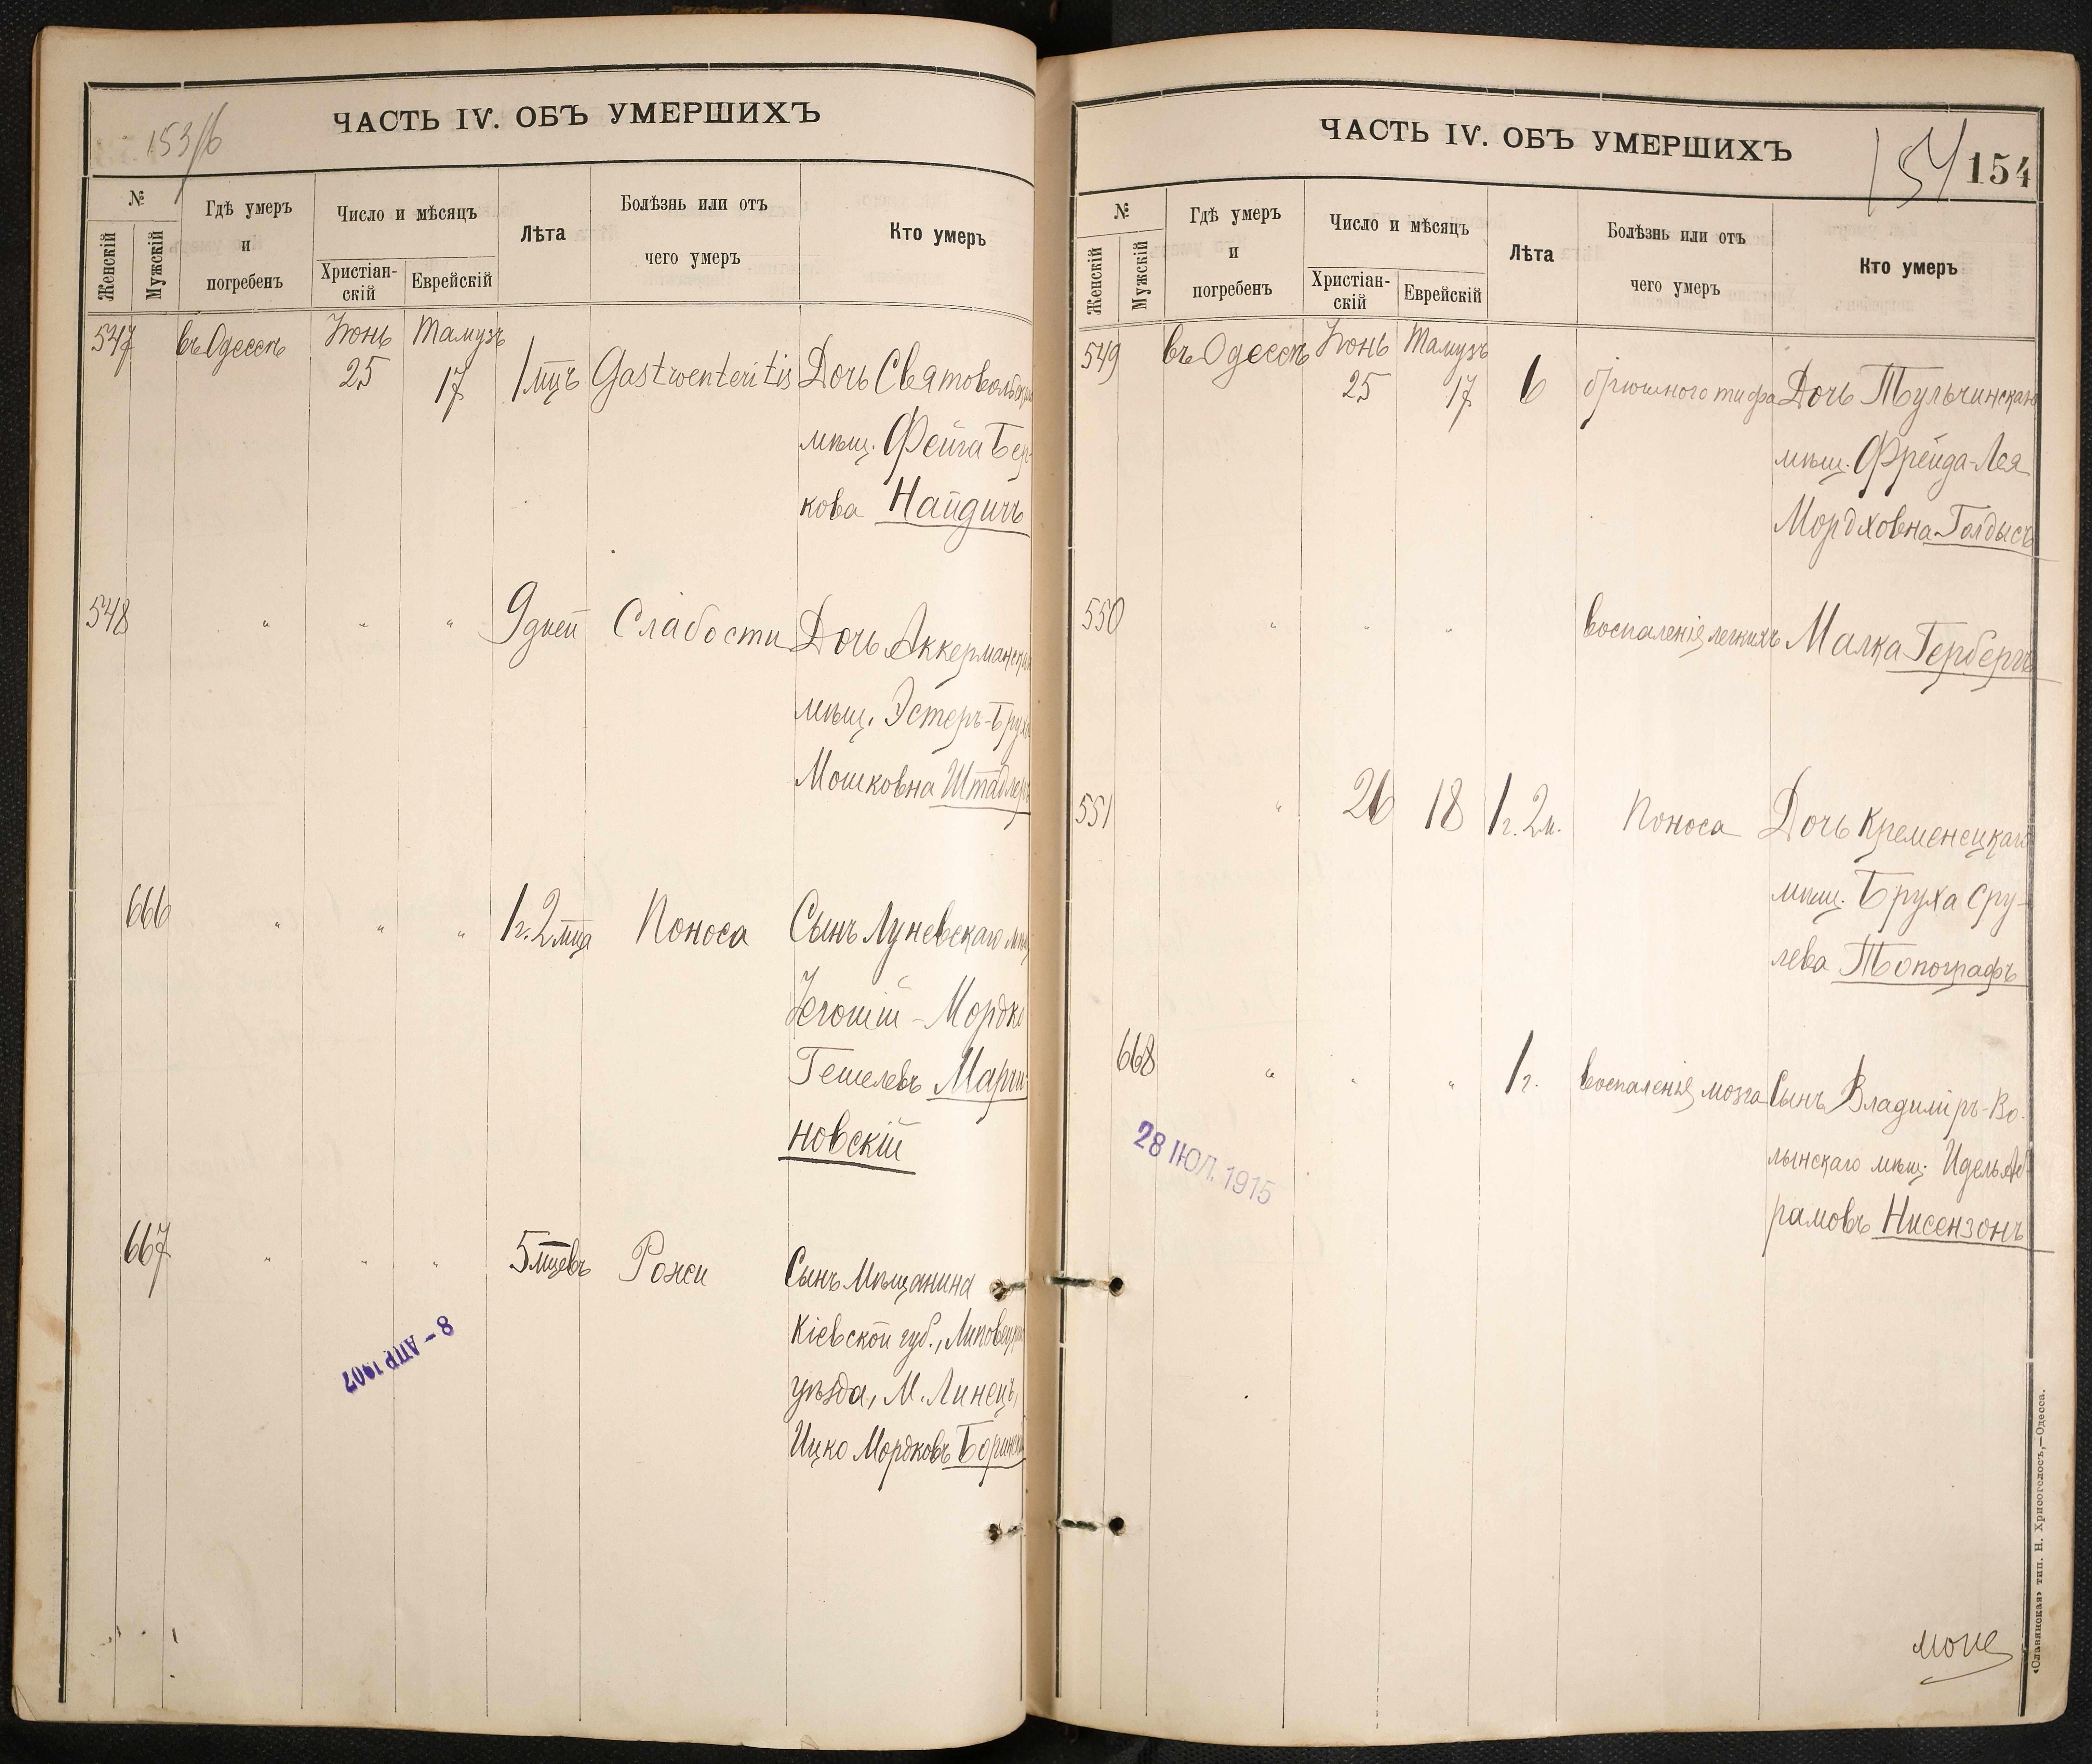 153/б
ЧАСТЬ IV. ОБЪ УМЕРШИХЪ
№
Женскій
Мужскій
Гдѣ умеръ
и
погребенъ
Число и мѣсяцъ
Христіан-
скій
Еврейскій
Лѣта
Болѣзнь или отъ
чего умеръ
Кто умеръ
547 въ Одессѣ Іюнь 25 Тамузъ 17 1 мцъ Gastroenteritis Дочь
мѣщ. Фейга Бер-
кова Найдичъ
548 " " " 9 дней Слабости Дочь
мѣщ. Эстеръ-
Мошковна
666 " " " 1 г. 2 мца Поноса Сынъ Луневскаго
Мордко
Гешелевъ Марчи-
новскій
667 " " " 5 мцевъ Рожи Сынъ Мѣщанина
Кіевской губ.,
уѣзда, М. Линецъ,
Ицко Мордковъ
8 – АПР 1907
ЧАСТЬ IV. ОБЪ УМЕРШИХЪ
154
154
№
Женскій
Мужскій
Гдѣ умеръ
и
погребенъ
Число и мѣсяцъ
Христіан-
скій
Еврейскій
Лѣта
Болѣзнь или отъ
чего умеръ
Кто умеръ
549 въ Одессѣ Іюнь 25 Тамузъ 17 6 брюшного тифа Дочь Тульчинскаго
мѣщ. Фрейда-Лея
Мордховна Голдысъ
550 " " " воспаленія легкихъ Малка Гербергъ
551 " 26 18 1 г. 2 м. Поноса Дочь Кременецкаго
мѣщ. Бруха Сру-
лева Топографъ
668 " " " 1 г. воспаленія мозга Сынъ Владимiръ-Во-
лынскаго мѣщ. Идель Аб-
рамовъ Нисензонъ
28 ІЮЛ. 1915
«Славянская» тип. Н. Хрисогелосъ,—Одесса.